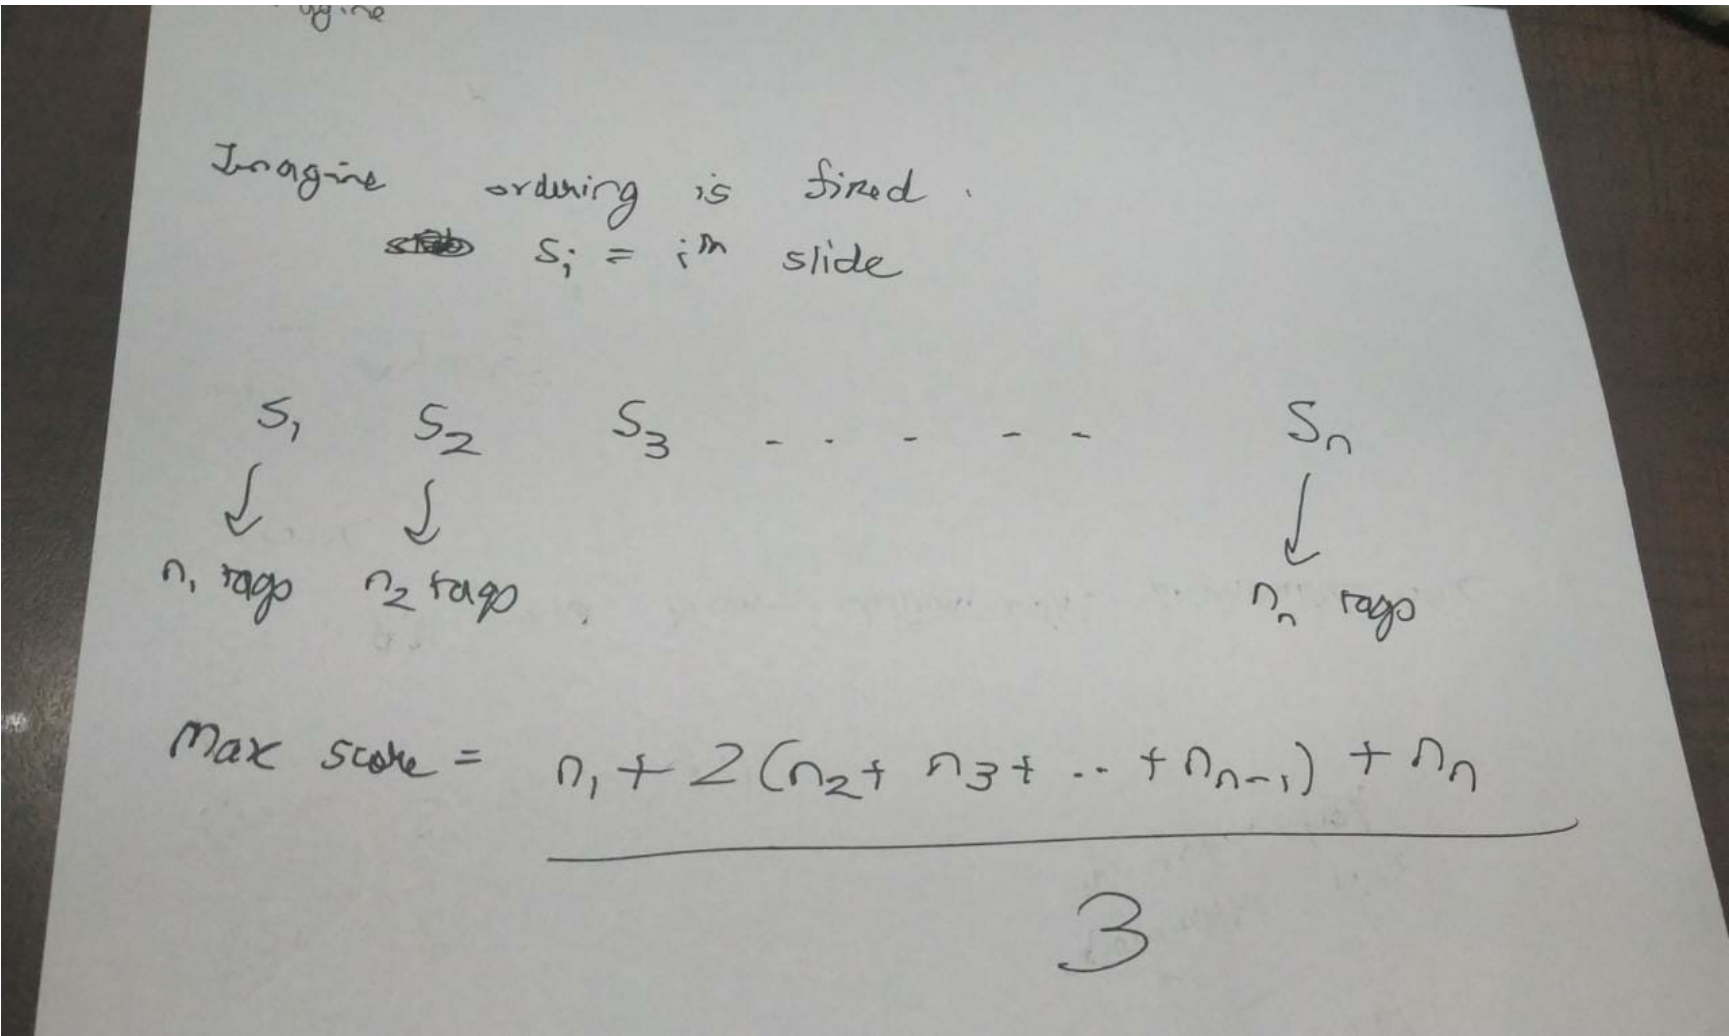 Imagine ordering is fixed.
Si = ith slide
S1 S2 S3 - - - - - Sn
n1 tags n2 tags nn tags
Max score = n1 + 2(n2 + n3 + .. + nn-1) + nn
3